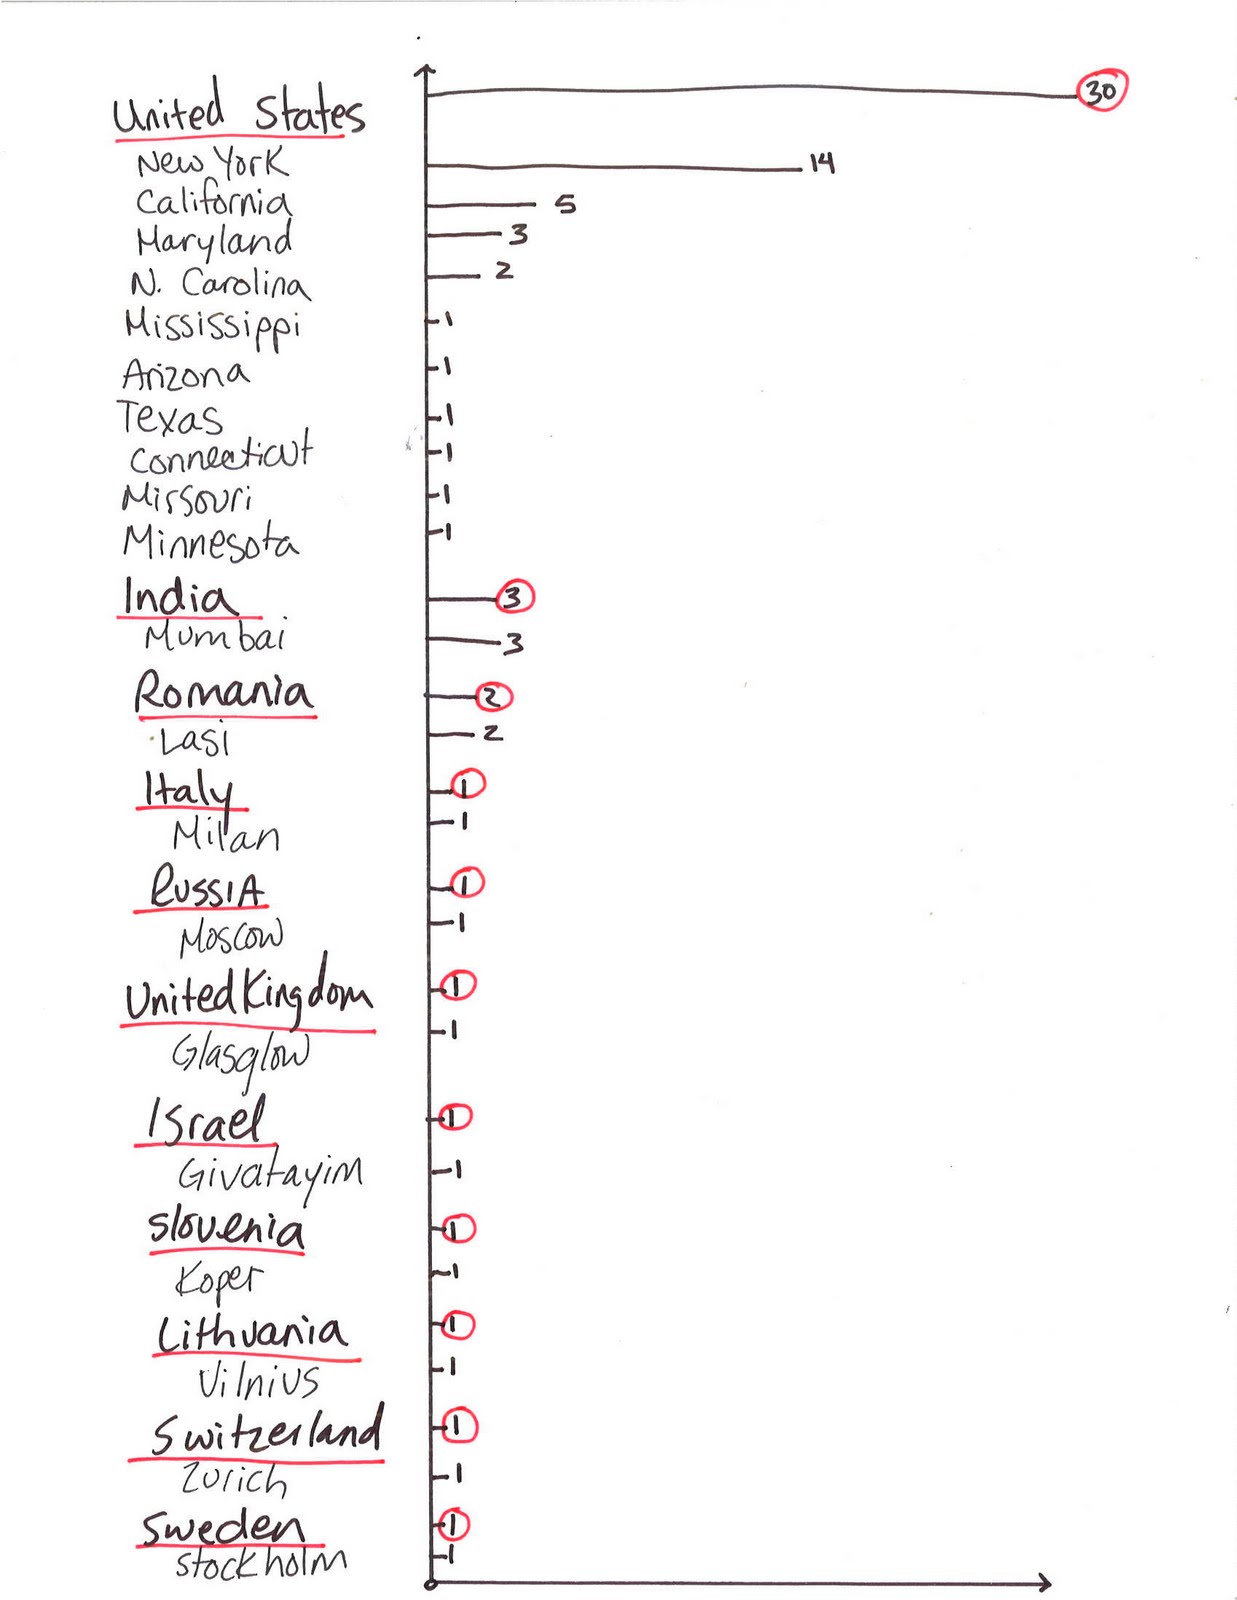 United States 30
New York 14
California 5
Maryland 3
N. Carolina 2
Mississippi 1
Arizona 1
Texas 1
Connecticut 1
Missouri 1
Minnesota 1
India 3
Mumbai 3
Romania 2
Lasi 2
Italy 1
Milan 1
RussiA 1
Moscow 1
United Kingdom 1
Glasglow 1
Israel 1
Givatayim 1
Slovenia 1
Koper 1
Lithuania 1
Vilnius 1
Switzerland 1
Zurich 1
Sweden 1
Stockholm 1